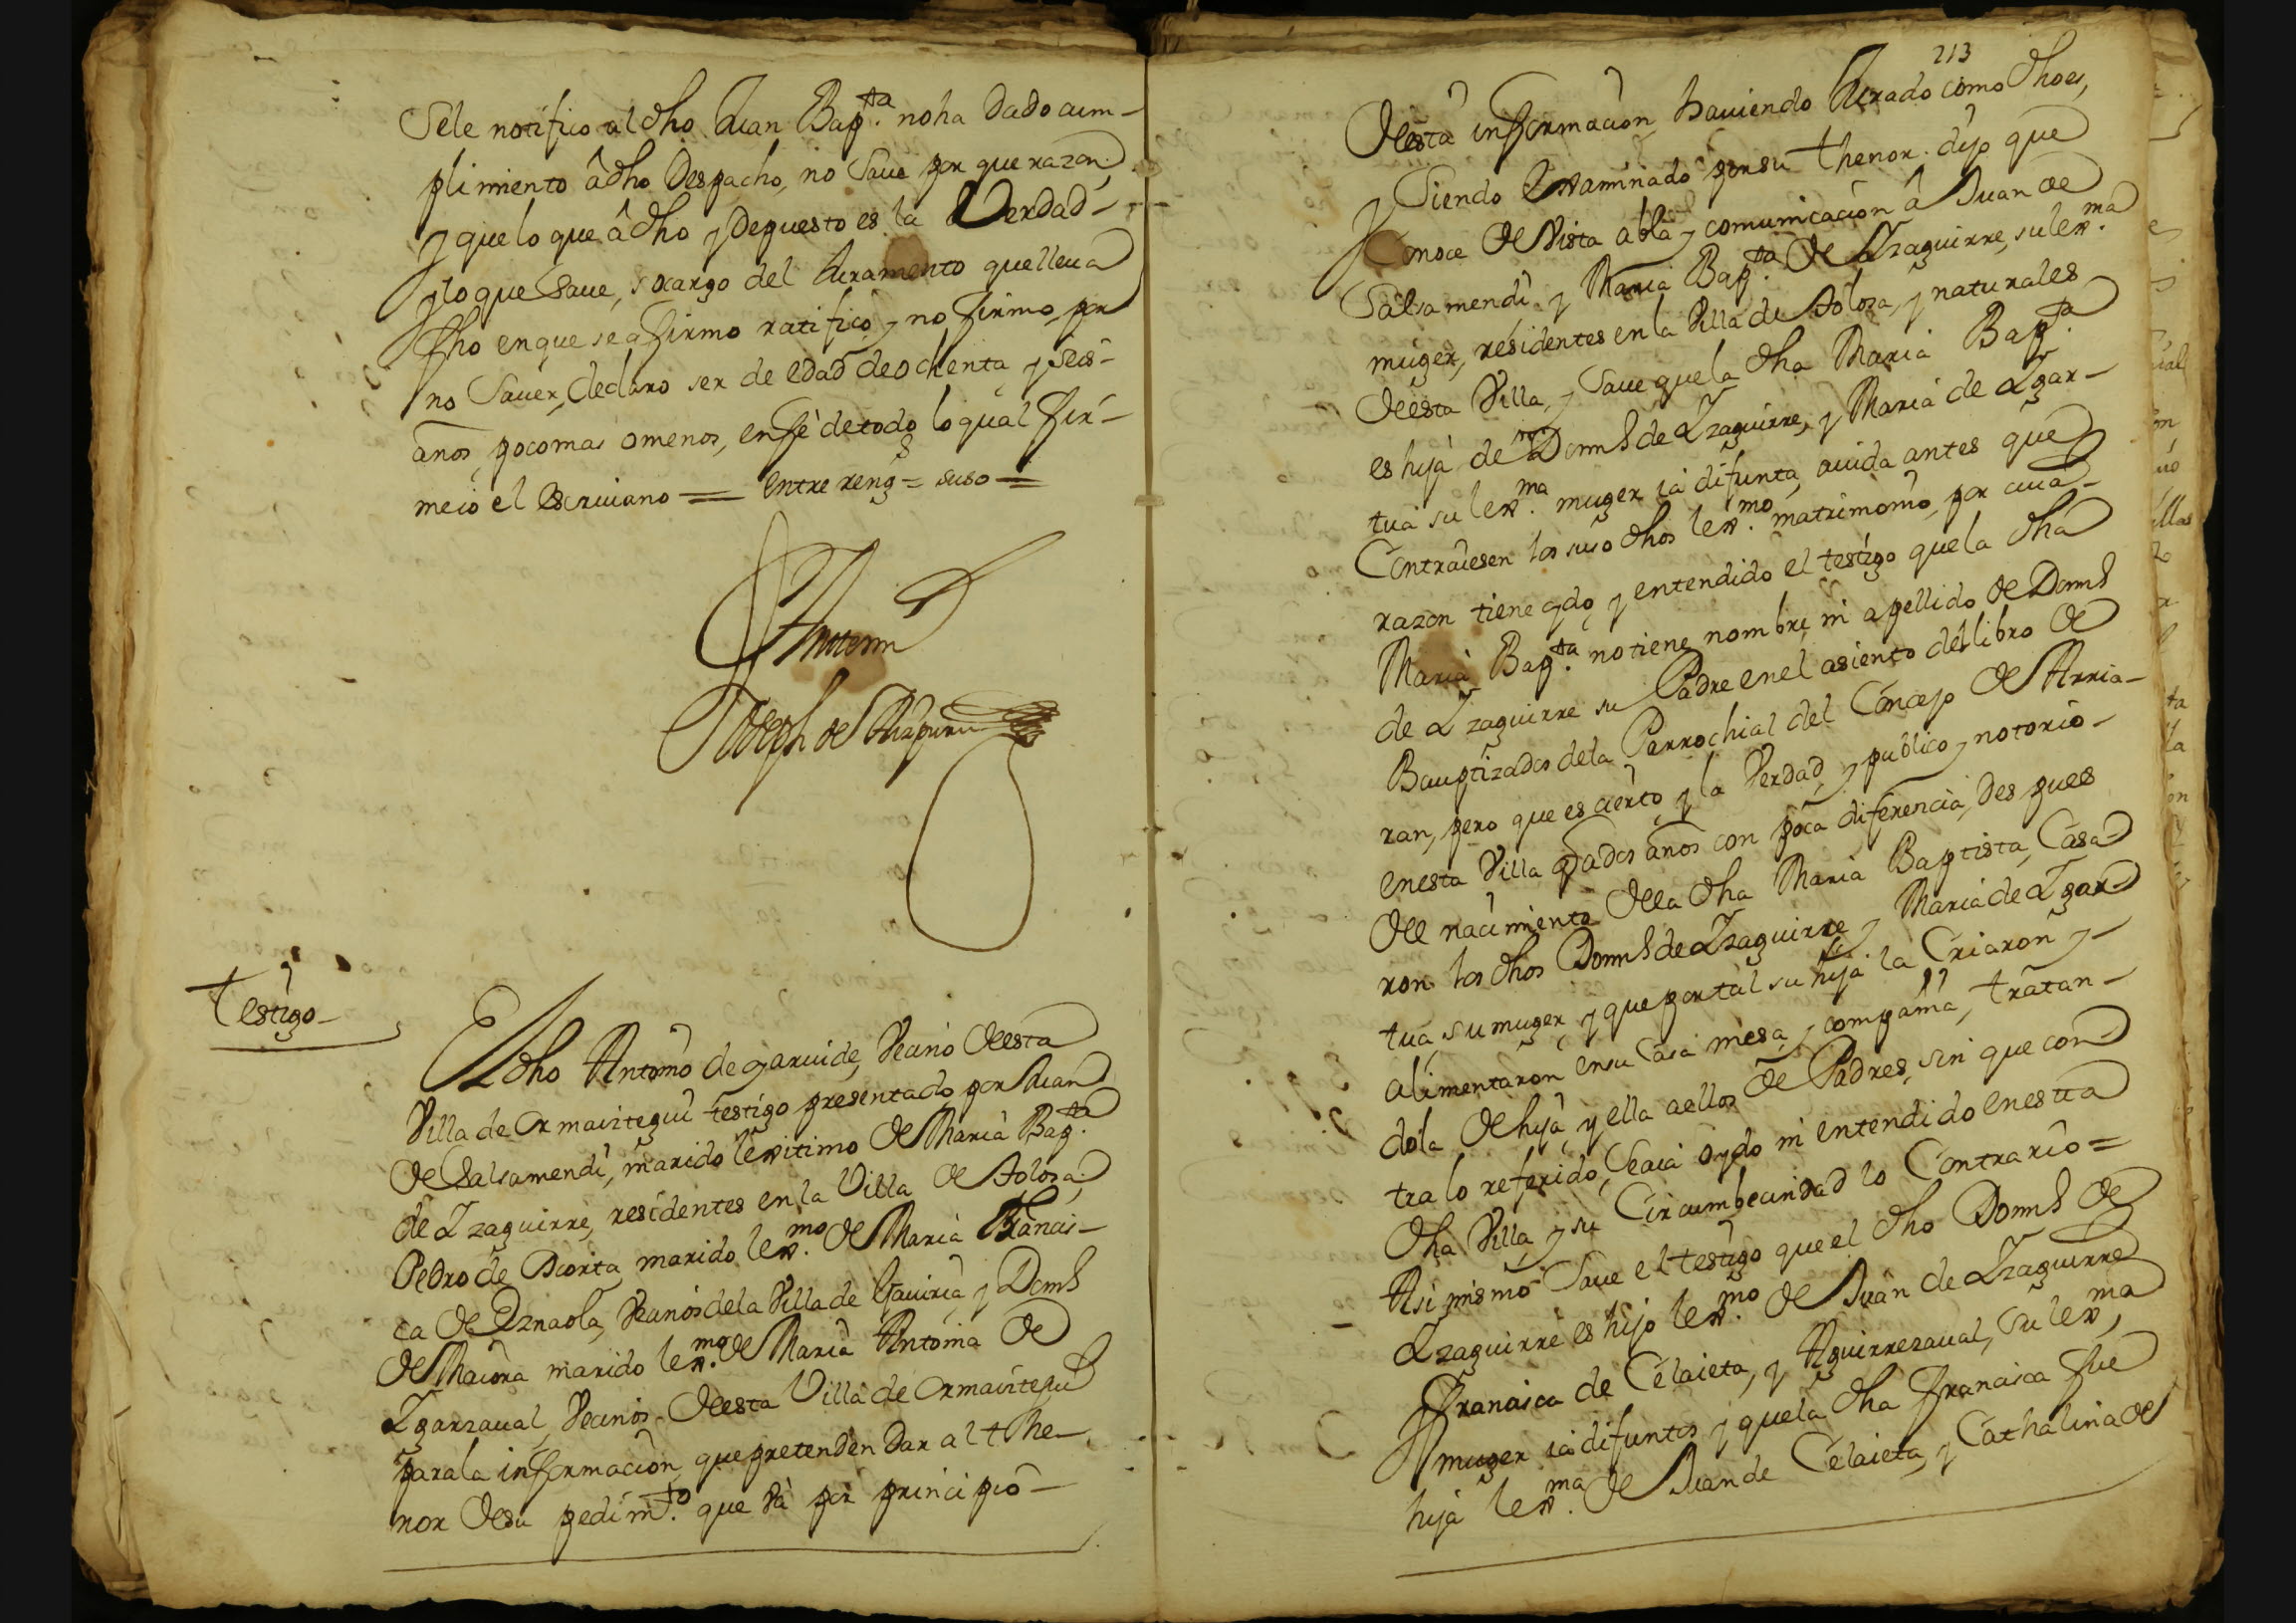 Sele notifico al dho Juan Bap.ta no ha dado cum-
plimiento â dho Despacho, no Save por que razon,
y que lo que â dho y Depuesto es la Verdad-
y lo que Save, so cargo del Juramento que lleua
fho en que se afirmo ratifico y no firmo por
no Sauer, declaro ser de edad de ochenta y seis-
años, poco mas o menos, en fè de todo lo qual fir-
me io el escriuano = entre reng = suso =
Antemi
Joseph de
Testigo-
El dho Antonio de garuide, Vecino de esta
Villa de Ormaiztegui testigo presentado por Juan
de Salsamendi, marido lexitimo de Maria Bap.ta
de Yzaguirre, residentes en la Villa de Tolosa,
Pedro de Dorta marido lex.mo de Maria Francis-
ca de Oznaola, Vecinos de la Villa de Gauiria y Doms
de Maiora marido lex.mo de Maria Antonia de
Ygarzaual, Vecinos de esta Villa de Ormaiztegui
para la informacion que pretenden dar al the-
nor de su pedim.to que và por principio-
213
de esta informacion haviendo Jurado como dho es,
y Siendo examinado por su thenor. dijo que
Conoce de Vista abla y comunicacion â Juan de
Salsamendi y Maria Bap.ta de Yzaguirre, su lex.ma
muger, residentes en la Villa de Tolosa, y naturales
de esta Villa, y Saue que la dha Maria Bap.ta
es hija de Doms de Yzaguirre, y Maria de Ygar-
tua su lex.ma muger ia difunta, auida antes que
Contraiesen los suso dhos lex.mo matrimonio, por cuia-
razon tiene oydo y entendido el testigo que la dha
Maria Bap.ta no tiene nombre ni apellido de Doms
de Yzaguirre su Padre en el asiento del libro de
Bauptizados dela Parrochial del Concejo de Arria-
ran, pero que es cierto y la Verdad, y publico y notorio-
en esta Villa que a dos años con poca diferencia, des pues
del nacimiento de la dha Maria Baptista, Casa-
ron los dhos Doms de Yzaguirre y Maria de Ygar-
tua su muger y que por tal su hija la Criaron y-
alimentaron en su Casa mesa y compañia, tratan-
dola de hija y ella aellos de Padres, sin que con-
tra lo referido, Seaia oydo ni entendido en esta
dha Villa y su Circumbecindad lo Contrario =
Asi mismo Saue el testigo que el dho Doms de
Yzaguirre es hijo lex.mo de Juan de Yzaguirre
y Francisca de Celaieta, y Aguirrezaual, su lex.ma
muger ia difuntos y que la dha Francisca fue
hija lex.ma de Juan de Celaieta, y Cathalina de